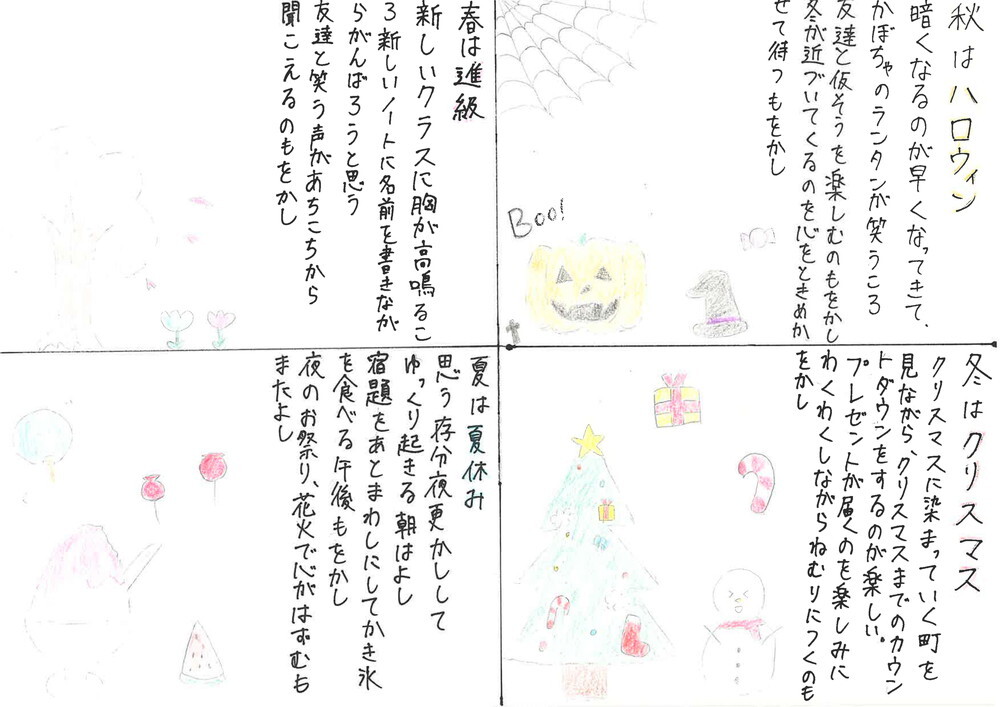 春は進級
新しいクラスに胸が高鳴るこ
ろ新しいノートに名前を書きなが
らがんばろうと思う
友達と笑う声があちこちから
聞こえるのもをかし
夏は夏休み
思う存分夜更かしして
ゆっくり起きる朝はよし
宿題をあとまわしにしてかき氷
を食べる午後もをかし
夜のお祭り、花火で心がはずむも
またよし
秋はハロウィン
暗くなるのが早くなってきて、
かぼちゃのランタンが笑うころ
友達と仮そうを楽しむのもをかし
冬が近づいてくるのを心をときめか
せて待つもをかし
Boo!
冬はクリスマス
クリスマスに染まっていく町を
見ながら、クリスマスまでのカウン
トダウンをするのが楽しい。
プレゼントが届くのを楽しみに
わくわくしながらねむりにつくのも
をかし